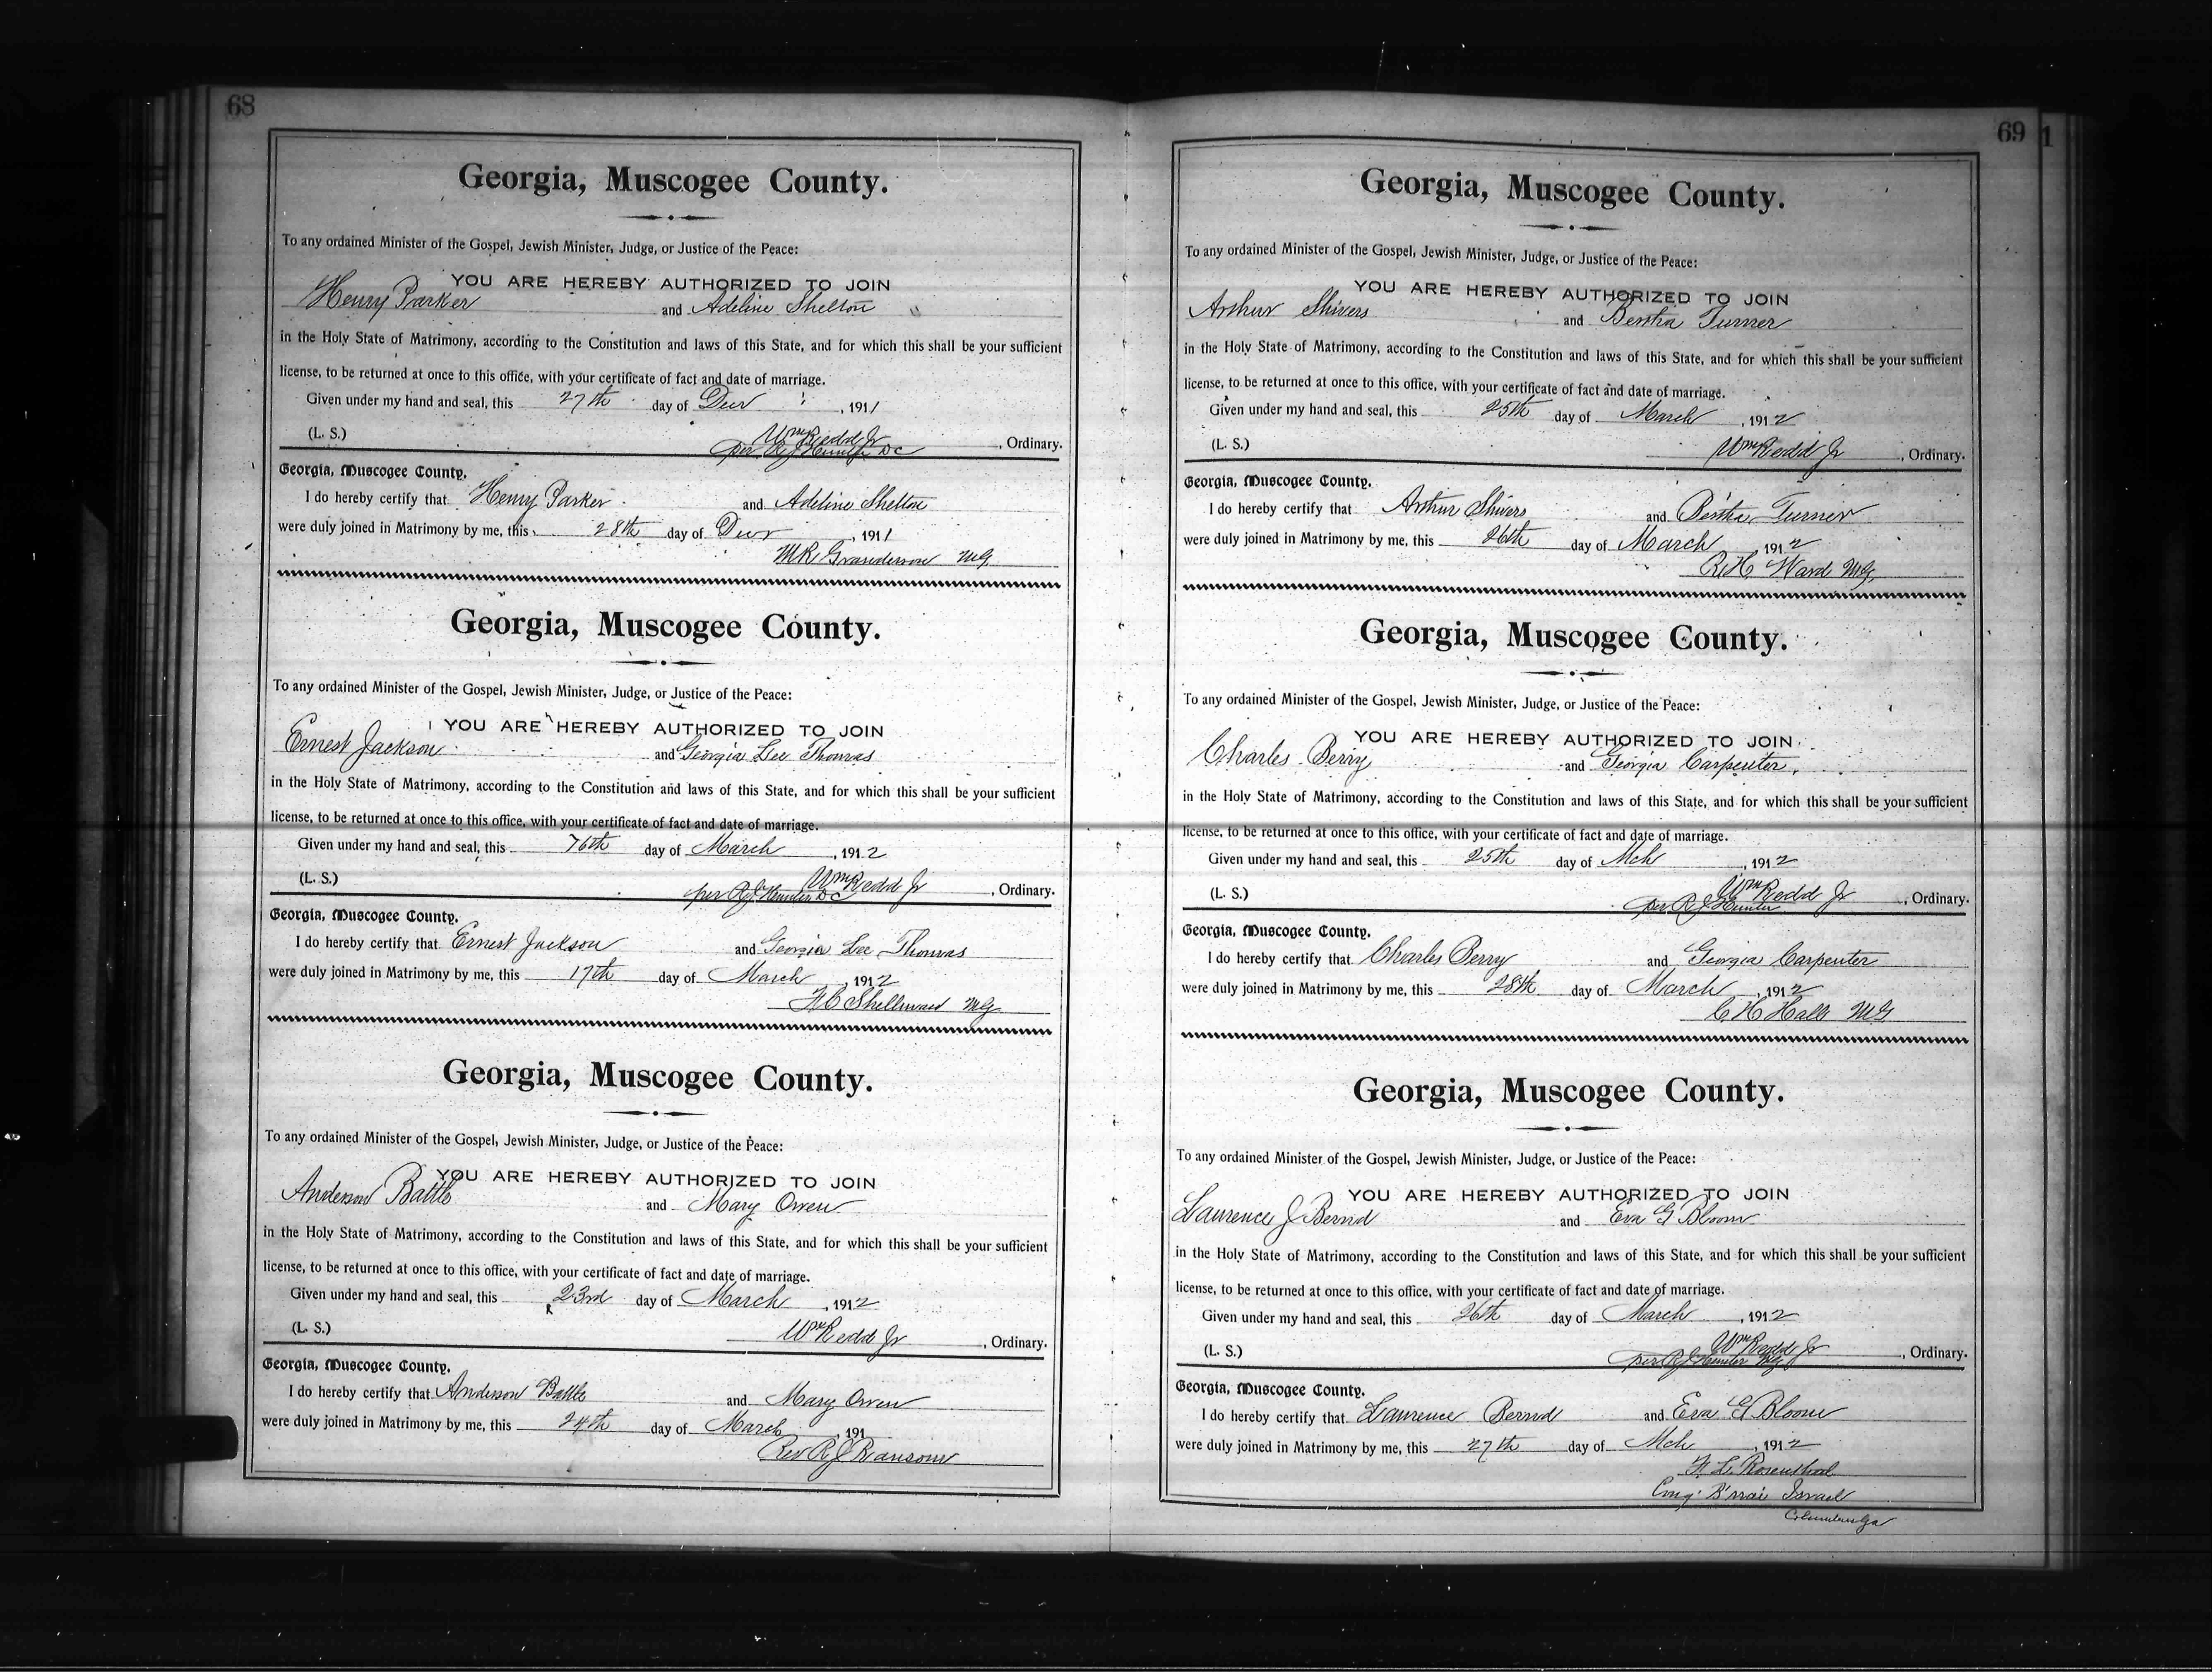 68
Georgia, Muscogee County.
To any ordained Minister of the Gospel, Jewish Minister, Judge, or Justice of the Peace:
YOU ARE HEREBY AUTHORIZED TO JOIN
Henry Parker and Adeline Shelton
in the Holy State of Matrimony, according to the Constitution and laws of this State, and for which this shall be your sufficient
license, to be returned at once to this office, with your certificate of fact and date of marriage.
Given under my hand and seal, this 27th day of Decr , 1911
Wm Redd Jr
(L. S.) per R J Hunter DC , Ordinary.
Georgia, Muscogee County.
I do hereby certify that Henry Parker and Adeline Shelton
were duly joined in Matrimony by me, this 28th day of Decr , 1911
M R Granderson MG
Georgia, Muscogee County.
To any ordained Minister of the Gospel, Jewish Minister, Judge, or Justice of the Peace:
YOU ARE HEREBY AUTHORIZED TO JOIN
Ernest Jackson and Georgia Lee Thomas
in the Holy State of Matrimony, according to the Constitution and laws of this State, and for which this shall be your sufficient
license, to be returned at once to this office, with your certificate of fact and date of marriage.
Given under my hand and seal, this 16th day of March , 1912
Wm Redd Jr
(L. S.) per R J Hunter DC , Ordinary.
Georgia, Muscogee County.
I do hereby certify that Ernest Jackson and Georgia Lee Thomas
were duly joined in Matrimony by me, this 17th day of March , 1912
MG
Georgia, Muscogee County.
To any ordained Minister of the Gospel, Jewish Minister, Judge, or Justice of the Peace:
YOU ARE HEREBY AUTHORIZED TO JOIN
Anderson Battle and Mary Owen
in the Holy State of Matrimony, according to the Constitution and laws of this State, and for which this shall be your sufficient
license, to be returned at once to this office, with your certificate of fact and date of marriage.
Given under my hand and seal, this 23rd day of March , 1912
(L. S.) Wm Redd Jr , Ordinary.
Georgia, Muscogee County.
I do hereby certify that Anderson Battle and Mary Owen
were duly joined in Matrimony by me, this 24th day of March , 191
Rev R J Ransom
69
1
Georgia, Muscogee County.
To any ordained Minister of the Gospel, Jewish Minister, Judge, or Justice of the Peace:
YOU ARE HEREBY AUTHORIZED TO JOIN
Arthur Shivers and Bertha Turner
in the Holy State of Matrimony, according to the Constitution and laws of this State, and for which this shall be your sufficient
license, to be returned at once to this office, with your certificate of fact and date of marriage.
Given under my hand and seal, this 25th day of March , 1912
(L. S.) Wm Redd Jr , Ordinary.
Georgia, Muscogee County.
I do hereby certify that Arthur Shivers and Bertha Turner
were duly joined in Matrimony by me, this 26th day of March , 1912
R. H. Ward MG.
Georgia, Muscogee County.
To any ordained Minister of the Gospel, Jewish Minister, Judge, or Justice of the Peace:
YOU ARE HEREBY AUTHORIZED TO JOIN
Charles Berry and Georgia Carpenter.
in the Holy State of Matrimony, according to the Constitution and laws of this State, and for which this shall be your sufficient
license, to be returned at once to this office, with your certificate of fact and date of marriage.
Given under my hand and seal, this 25th day of Mch , 1912
Wm Redd Jr
(L. S.) per R J Hunter , Ordinary.
Georgia, Muscogee County.
I do hereby certify that Charles Berry and Georgia Carpenter
were duly joined in Matrimony by me, this 28th day of March , 1912
C H Hall MG
Georgia, Muscogee County.
To any ordained Minister of the Gospel, Jewish Minister, Judge, or Justice of the Peace:
YOU ARE HEREBY AUTHORIZED TO JOIN
Laurence J Bernd and Eva G Bloom
in the Holy State of Matrimony, according to the Constitution and laws of this State, and for which this shall be your sufficient
license, to be returned at once to this office, with your certificate of fact and date of marriage.
Given under my hand and seal, this 26th day of March , 1912
Wm Redd Jr
(L. S.) per R J Hunter , Ordinary.
Georgia, Muscogee County.
I do hereby certify that Laurence Bernd and Eva G Bloom
were duly joined in Matrimony by me, this 27th day of Mch , 1912
F. L. Rosenthal
Cong. B'nai Israel
Columbus Ga